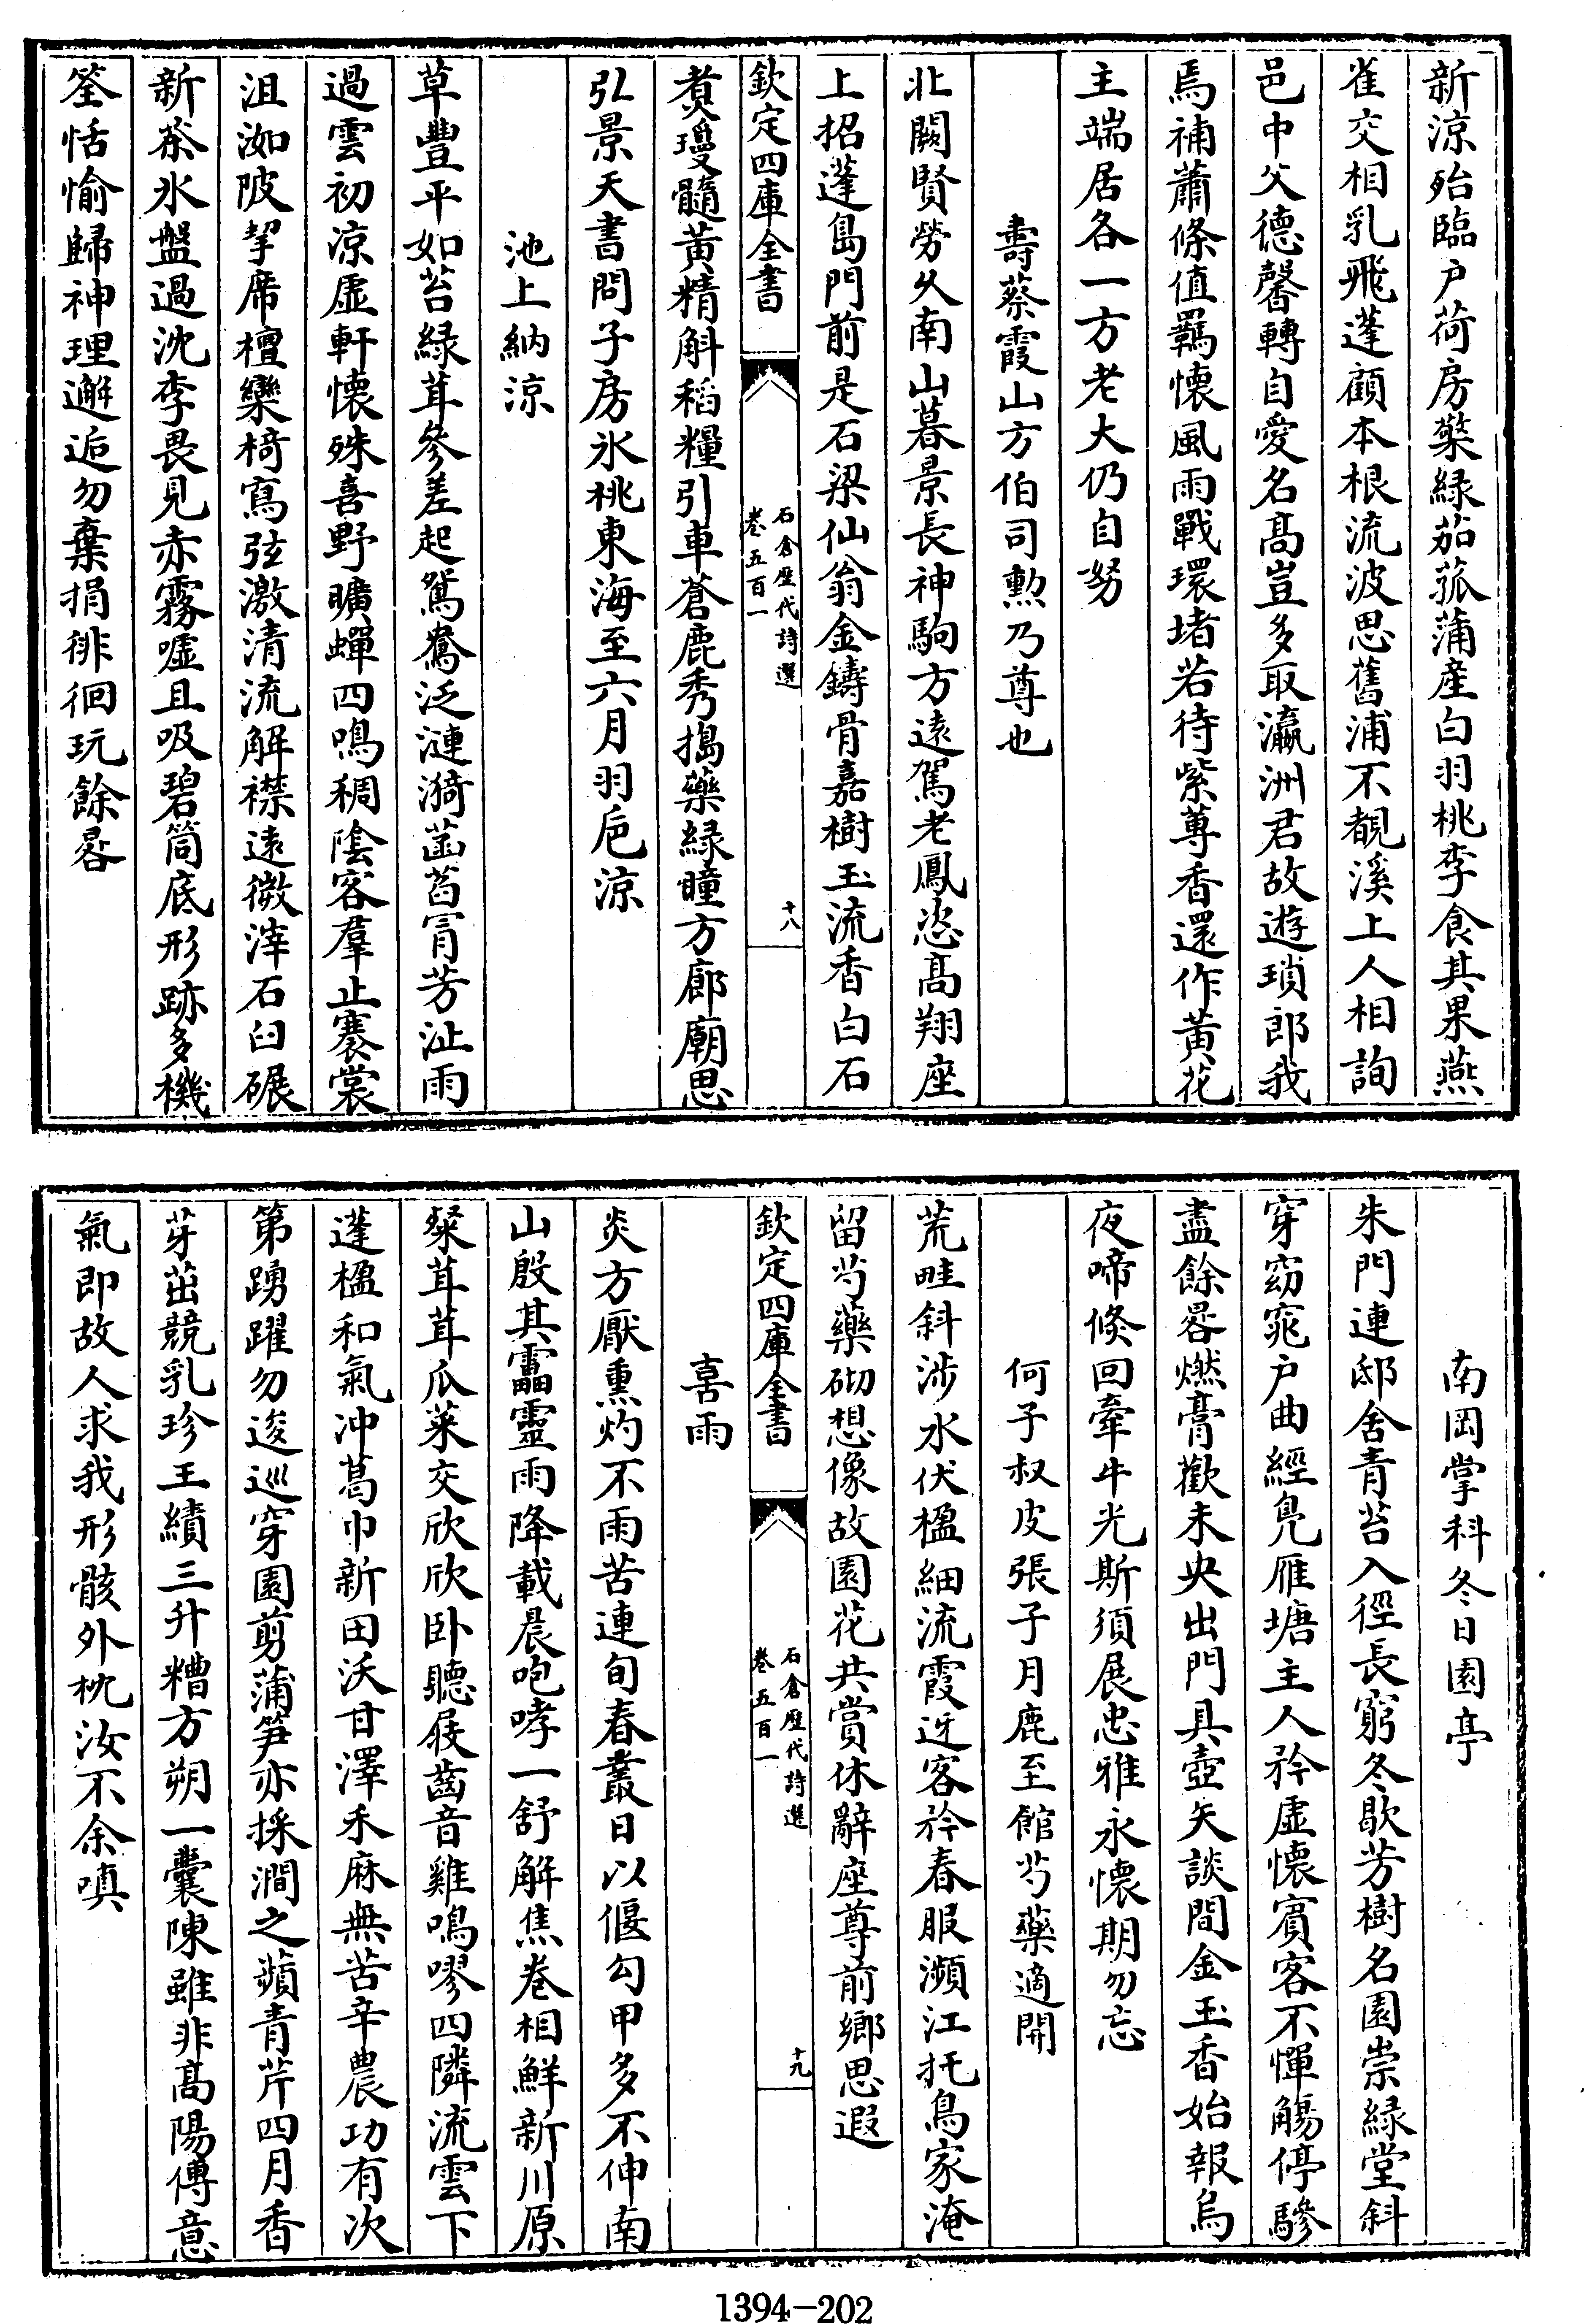 新涼殆臨户荷房蘂緑茄菰蒲産白羽桃李食其果燕
雀交相乳飛蓬顧本根流波思舊浦不覩溪上人相詢
邑中父德馨轉自愛名髙豈多取瀛洲君故遊瑣郎我
焉補蕭條值羈懷風雨戰環堵若待紫蓴香還作黄花
主端居各一方老大仍自努
壽蔡霞山方伯司勲乃尊也
北闕賢勞久南山暮景長神駒方遠駕老鳳恣髙翔座
上招蓬島門前是石梁仙翁金鑄骨嘉樹玉流香白石
欽定四庫全書
石倉歴代詩選
卷五百一
十八
煑瓊髓黄精斛稻糧引車蒼鹿秀搗藥緑瞳方廊廟思
弘景天書問子房氷桃東海至六月羽巵涼
池上納涼
草豐平如苔緑茸參差起鴛鴦泛漣漪菡萏冐芳沚雨
過雲初凉虚軒懷殊喜野曠蟬四鳴稠陰客羣止褰裳
沮洳陂挈席檀欒椅寫弦激清流解襟遠微滓石臼碾
新茶氷盤過沈李畏見赤霧噓且吸碧筒底形跡多機
筌恬愉歸神理邂逅勿棄捐徘徊玩餘晷
南岡掌科冬日園亭
朱門連邸舍青苔入徑長窮冬歇芳樹名園崇緑堂斜
穿窈窕户曲經鳬雁塘主人矜虚懷賓客不憚觴停驂
盡餘晷燃膏歡未央出門具壺矢談間金玉香始報烏
夜啼倏回牽牛光斯須展忠雅永懷期勿忘
何子叔皮張子月鹿至館芍藥適開
荒畦斜涉水伏楹細流霞近客矜春服瀕江托鳥家淹
留芍藥砌想像故園花共賞休辭座尊前鄉思遐
欽定四庫全書
石倉歴代詩選
卷五百一
十九
喜雨
炎方厭熏灼不雨苦連旬春叢日以偃勾甲多不伸南
山殷其靁靈雨降載晨咆哮一舒解焦卷相鮮新川原
粲茸茸瓜菓交欣欣卧聽屐齒音雞鳴嘐四隣流雲下
蓬楹和氣冲葛巾新田沃甘澤禾麻無苦辛農功有次
第踴躍勿逡巡穿園剪蒲笋亦採澗之蘋青芹四月香
芽茁競乳珍王績三升糟方朔一囊陳雖非髙陽傳意
氣即故人求我形骸外枕汝不余嗔
1394-202